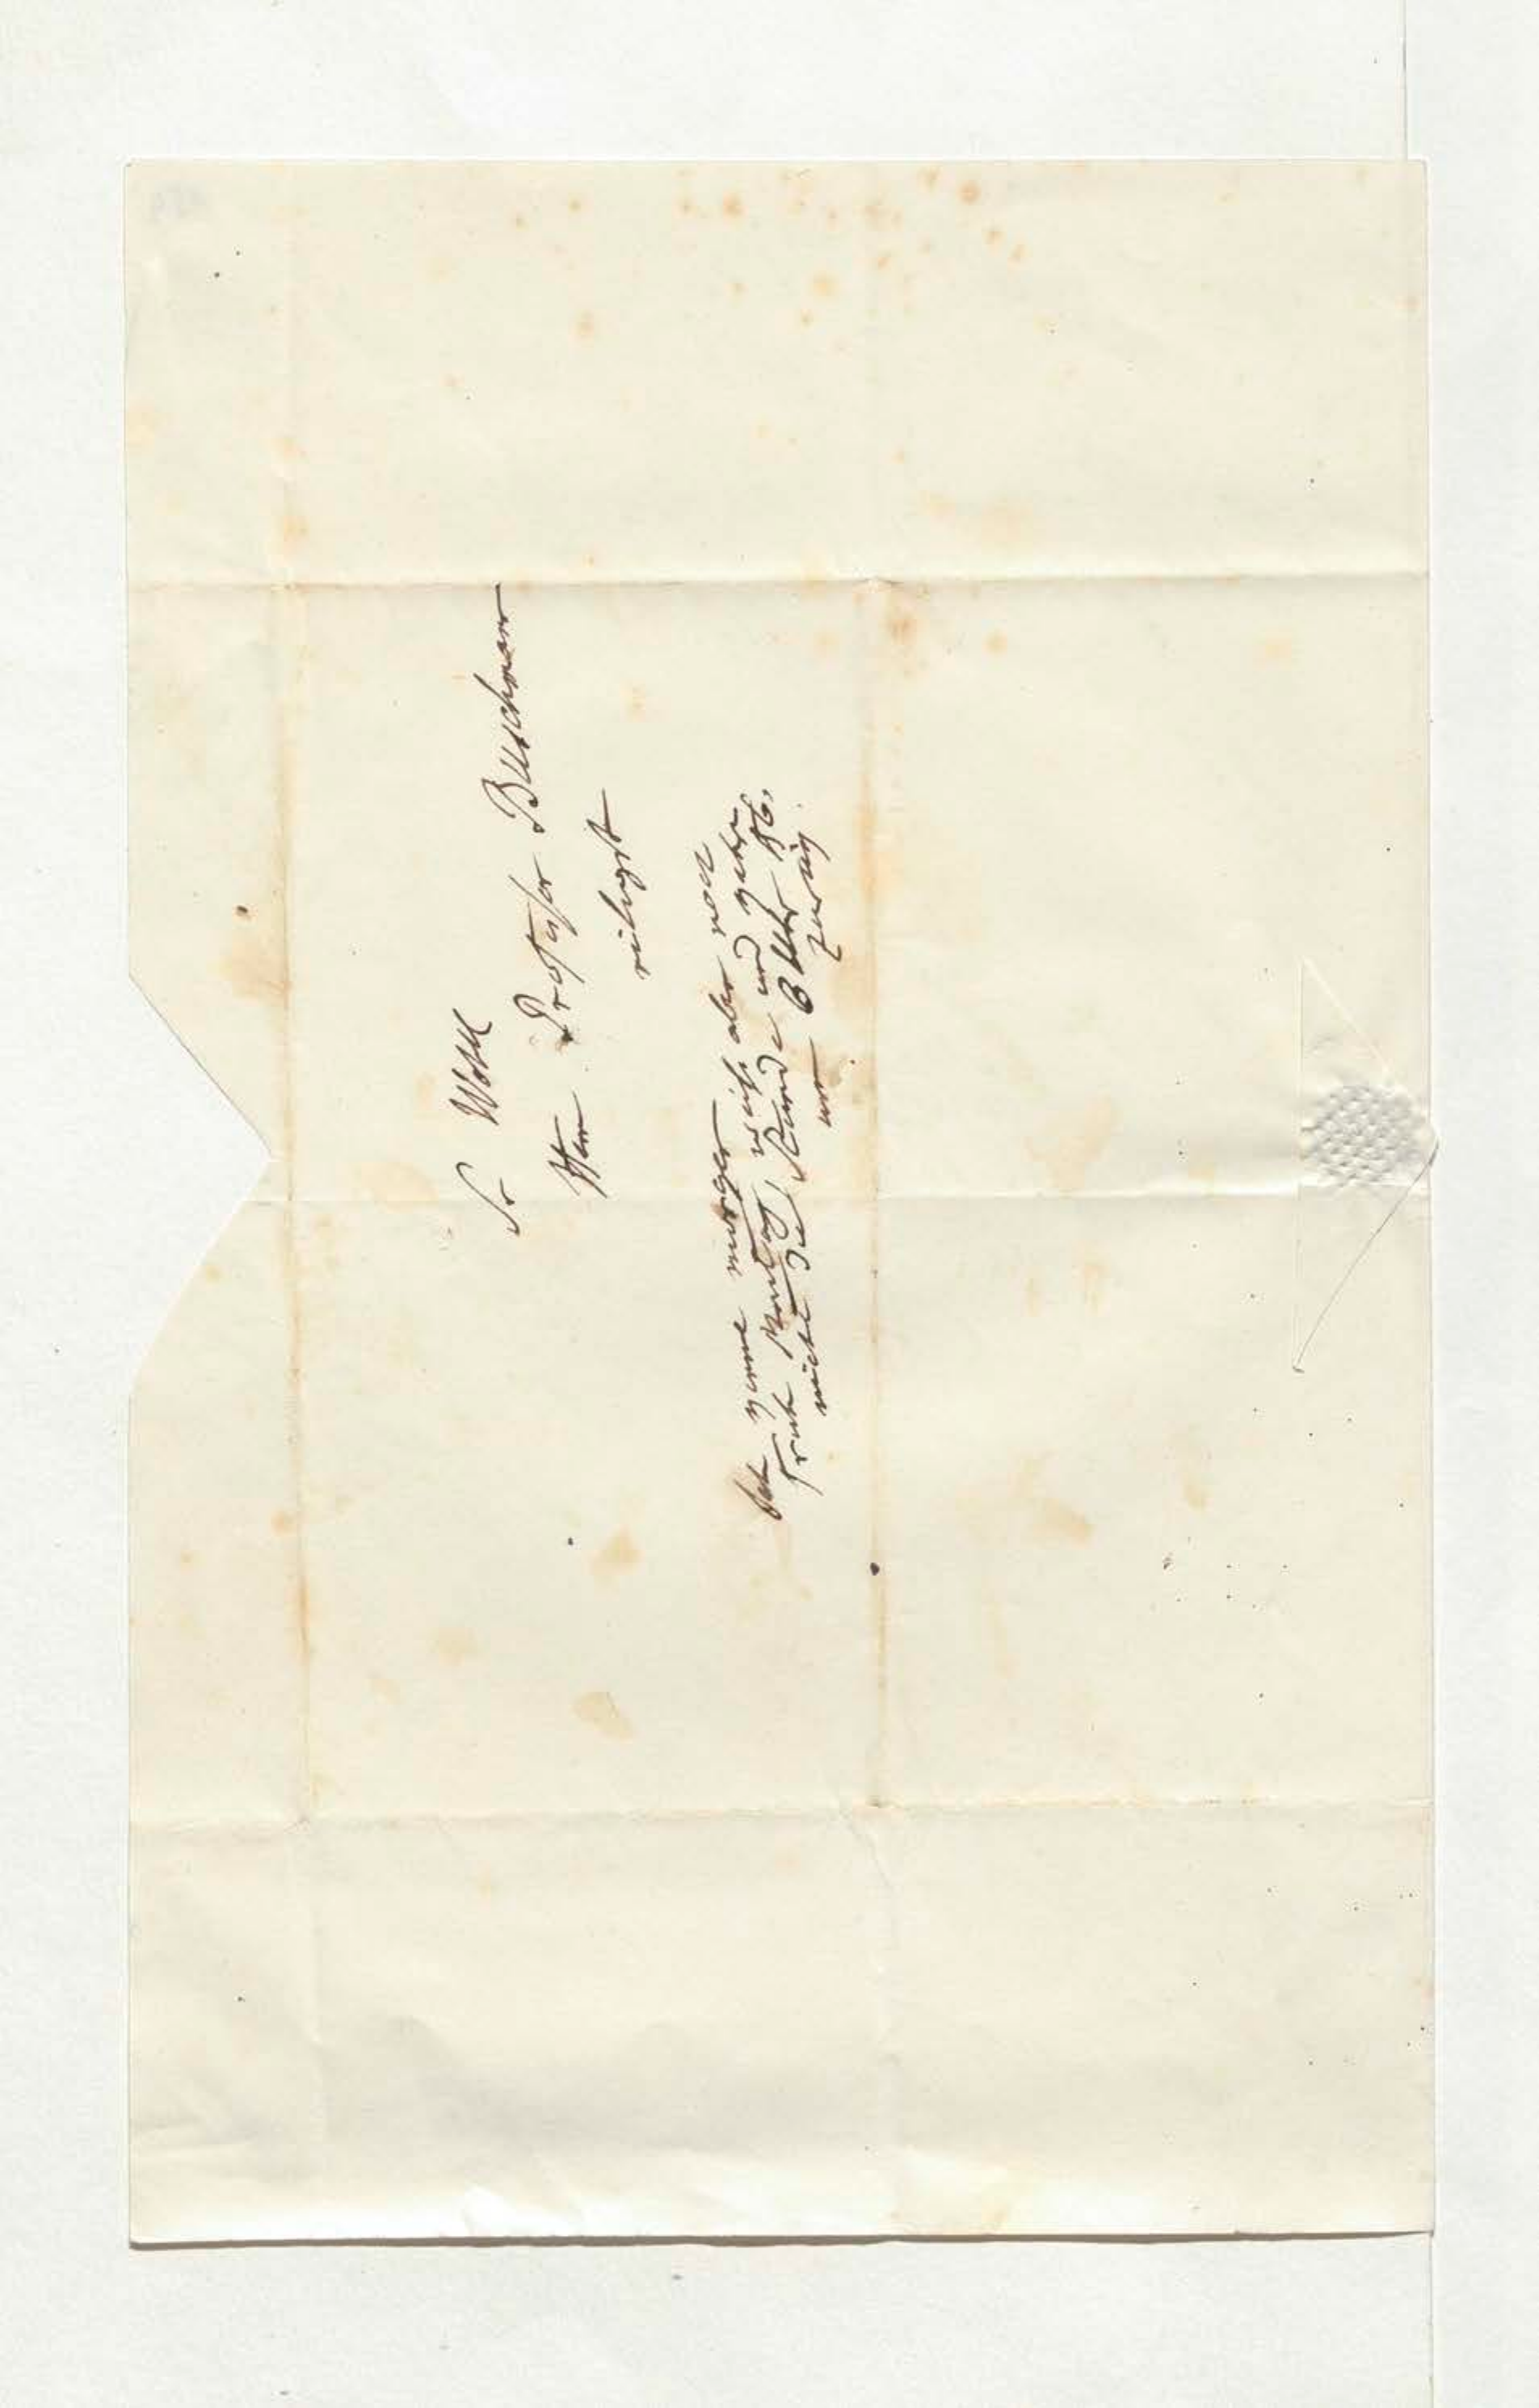 Sr Wohl
Herrn Professor Buschmann
eiligst
Ich komme morgen
früh Montag, weiss aber noch
nicht die Stunde und gehe
um 6 Uhr Ab.
zurük